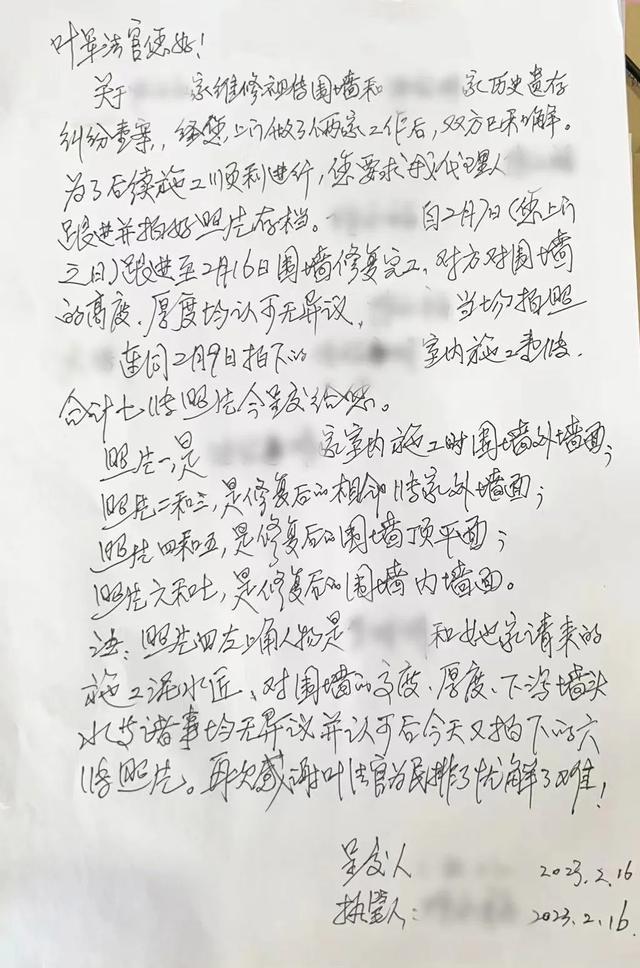 叶军法官您好！
关于 家维修祖传围墙和 家历史遗存
纠纷壹案，经您上门做了俩家工作后，双方已和解。
为了后续施工顺利进行，您要求我代理人
跟进并拍好照片存档。 自2月7日（您上门
之日）跟进至2月16日围墙修复完工，对方对围墙
的高度、厚度均认可无异议， 当场拍照
连同2月9日拍下的 室内施工
合计七张照片今呈交给您。
照片一，是 家室内施工时围墙外墙面；
照片二和三，是修复后的相邻 家外墙面；
照片四和五，是修复后的围墙顶平面；
照片六和七，是修复后的围墙内墙面。
注：照片四左上角人物是 和她家请来的
施工泥水匠、对围墙的高度、厚度、下 墙头
水 诸事均无异议并认可后今天又拍下的六
张照片。再次感谢叶法官为民排了忧解了难！
呈交人 2023.2.16
执笔人： 2023.2.16